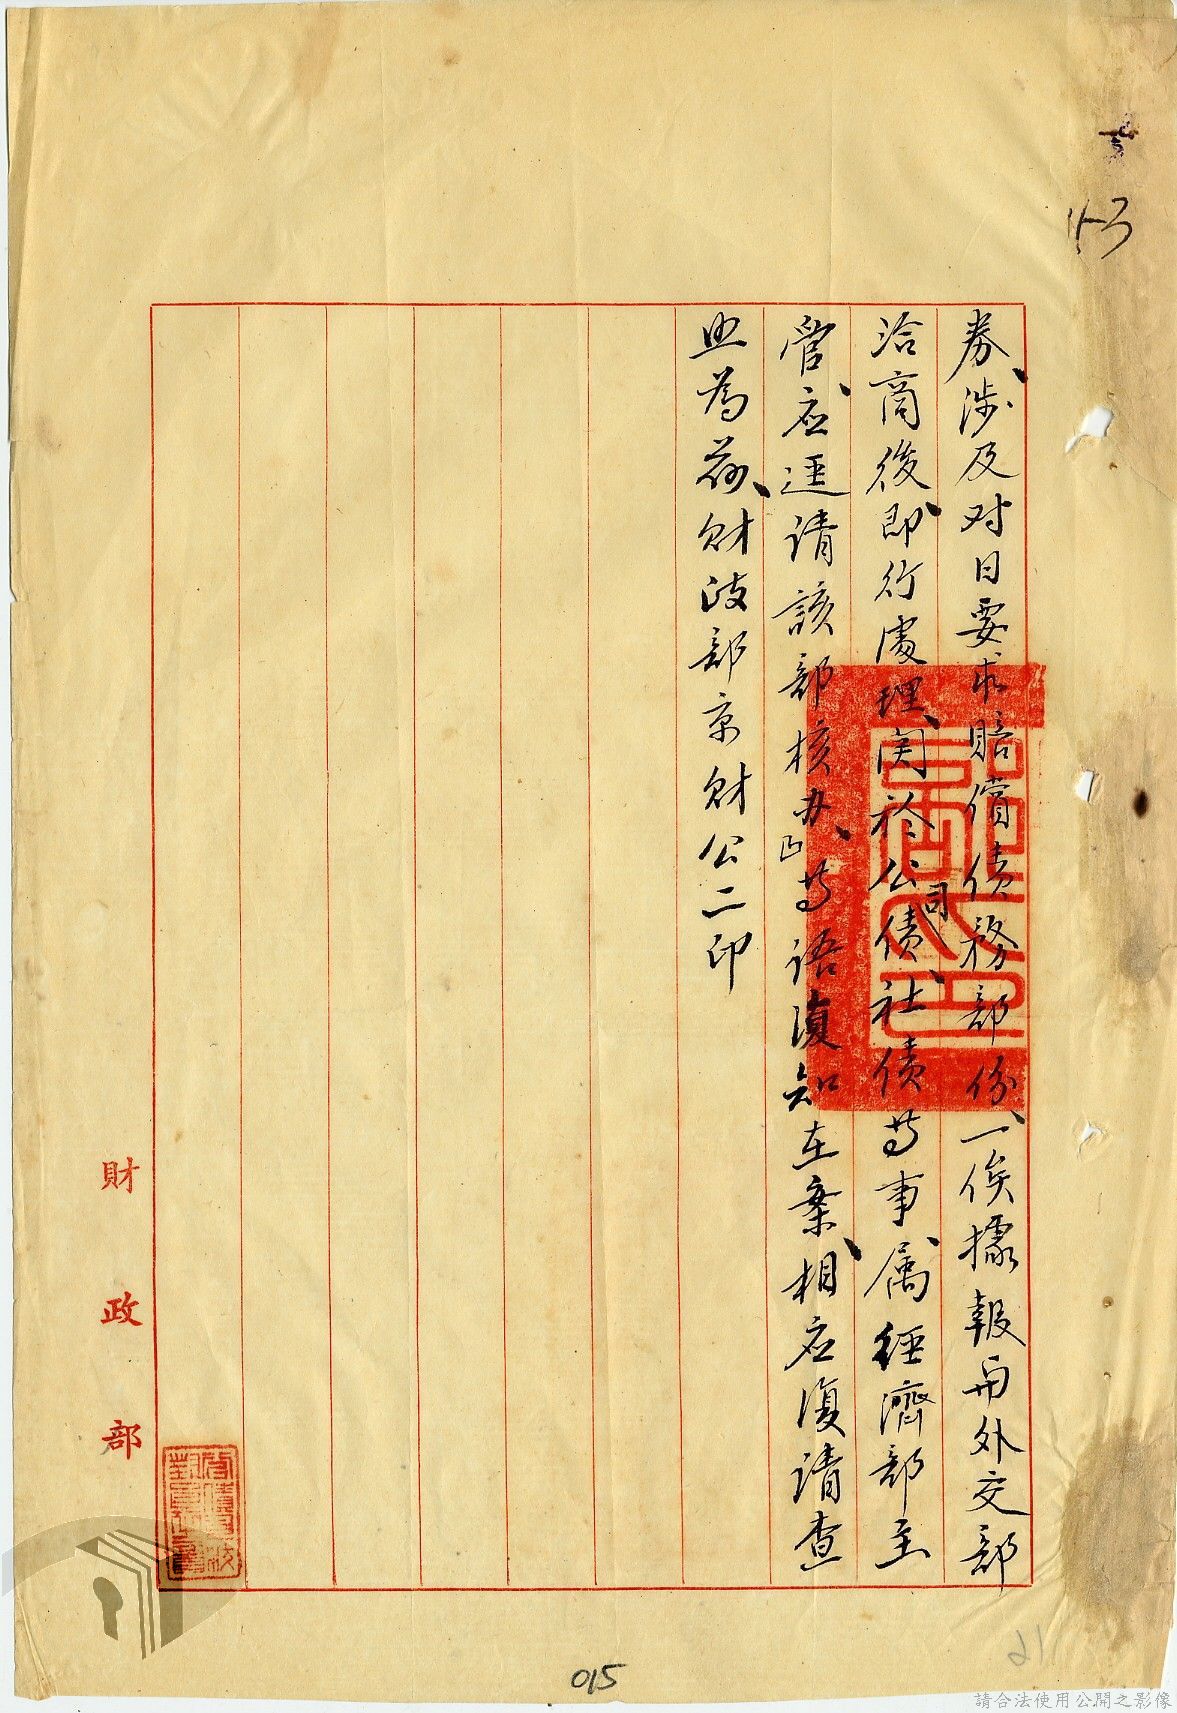 券、涉及对日要求賠償债務部份、一俟據報与外交部
洽商後、即行處理、関於公司债、社债等事、属經濟部主
管、应逕請該部核办、凹等语復知在案、相应復請查
照為荷、財政部京財公二印
財政部
015
請合法使用公開之影像